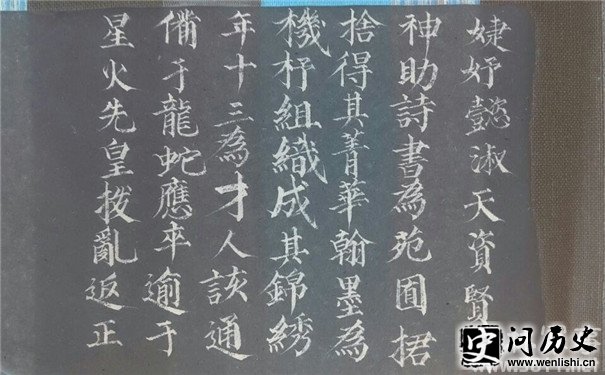 婕妤懿淑天資賢
神助詩書為苑囿捃
捨得其菁華翰墨為
機杼組織成其錦綉
年十三為才人該通
俻于龍蛇應卒逾于
星火先皇撥亂返正
史问历史
www.wenlishi.cn